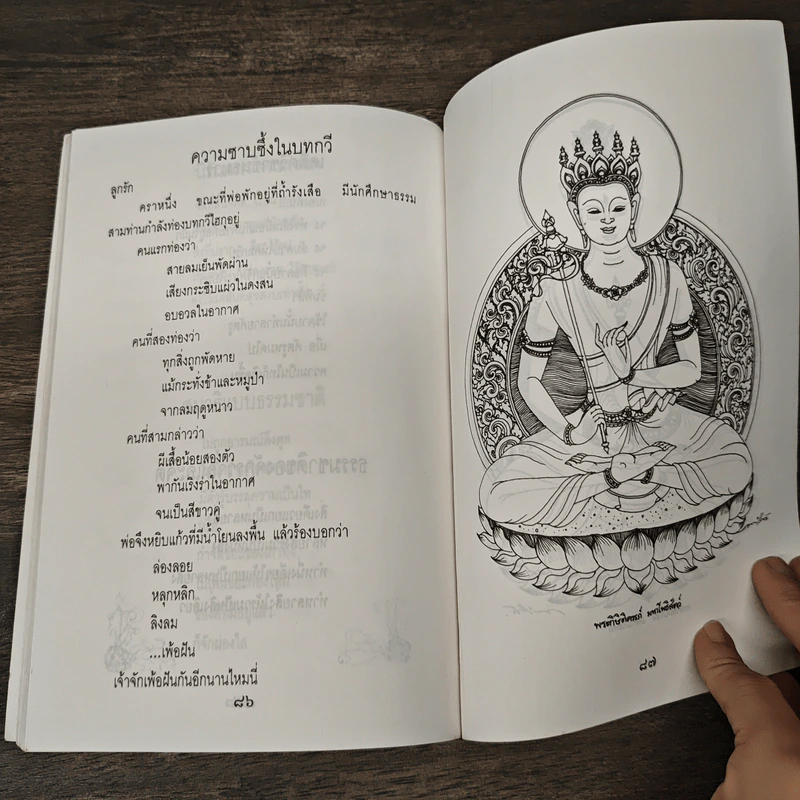 ความซาบซึ้งในบทกวี
ลูกรัก
คราหนึ่ง ขณะที่พ่อพักอยู่ที่ถ้ำรังเสือ มีนักศึกษาธรรม
สามท่านกำลังท่องบทกวีไฮกุอยู่
คนแรกท่องว่า
สายลมเย็นพัดผ่าน
เสียงกระซิบแผ่วในดงสน
อบอวลในอากาศ
คนที่สองท่องว่า
ทุกสิ่งถูกพัดหาย
แม้กระทั่งข้าและหมูป่า
จากลมฤดูหนาว
คนที่สามกล่าวว่า
ผีเสื้อน้อยสองตัว
พากันเริงร่าในอากาศ
จนเป็นสีขาวคู่
พ่อจึงหยิบแก้วที่มีน้ำโยนลงพื้น แล้วร้องบอกว่า
ล่องลอย
หลุกหลิก
ลิงลม
...เพ้อฝัน
เจ้าจักเพ้อฝันกันอีกนานไหมนี่
๘๖
มหาโพธิสัตว์
๘๗